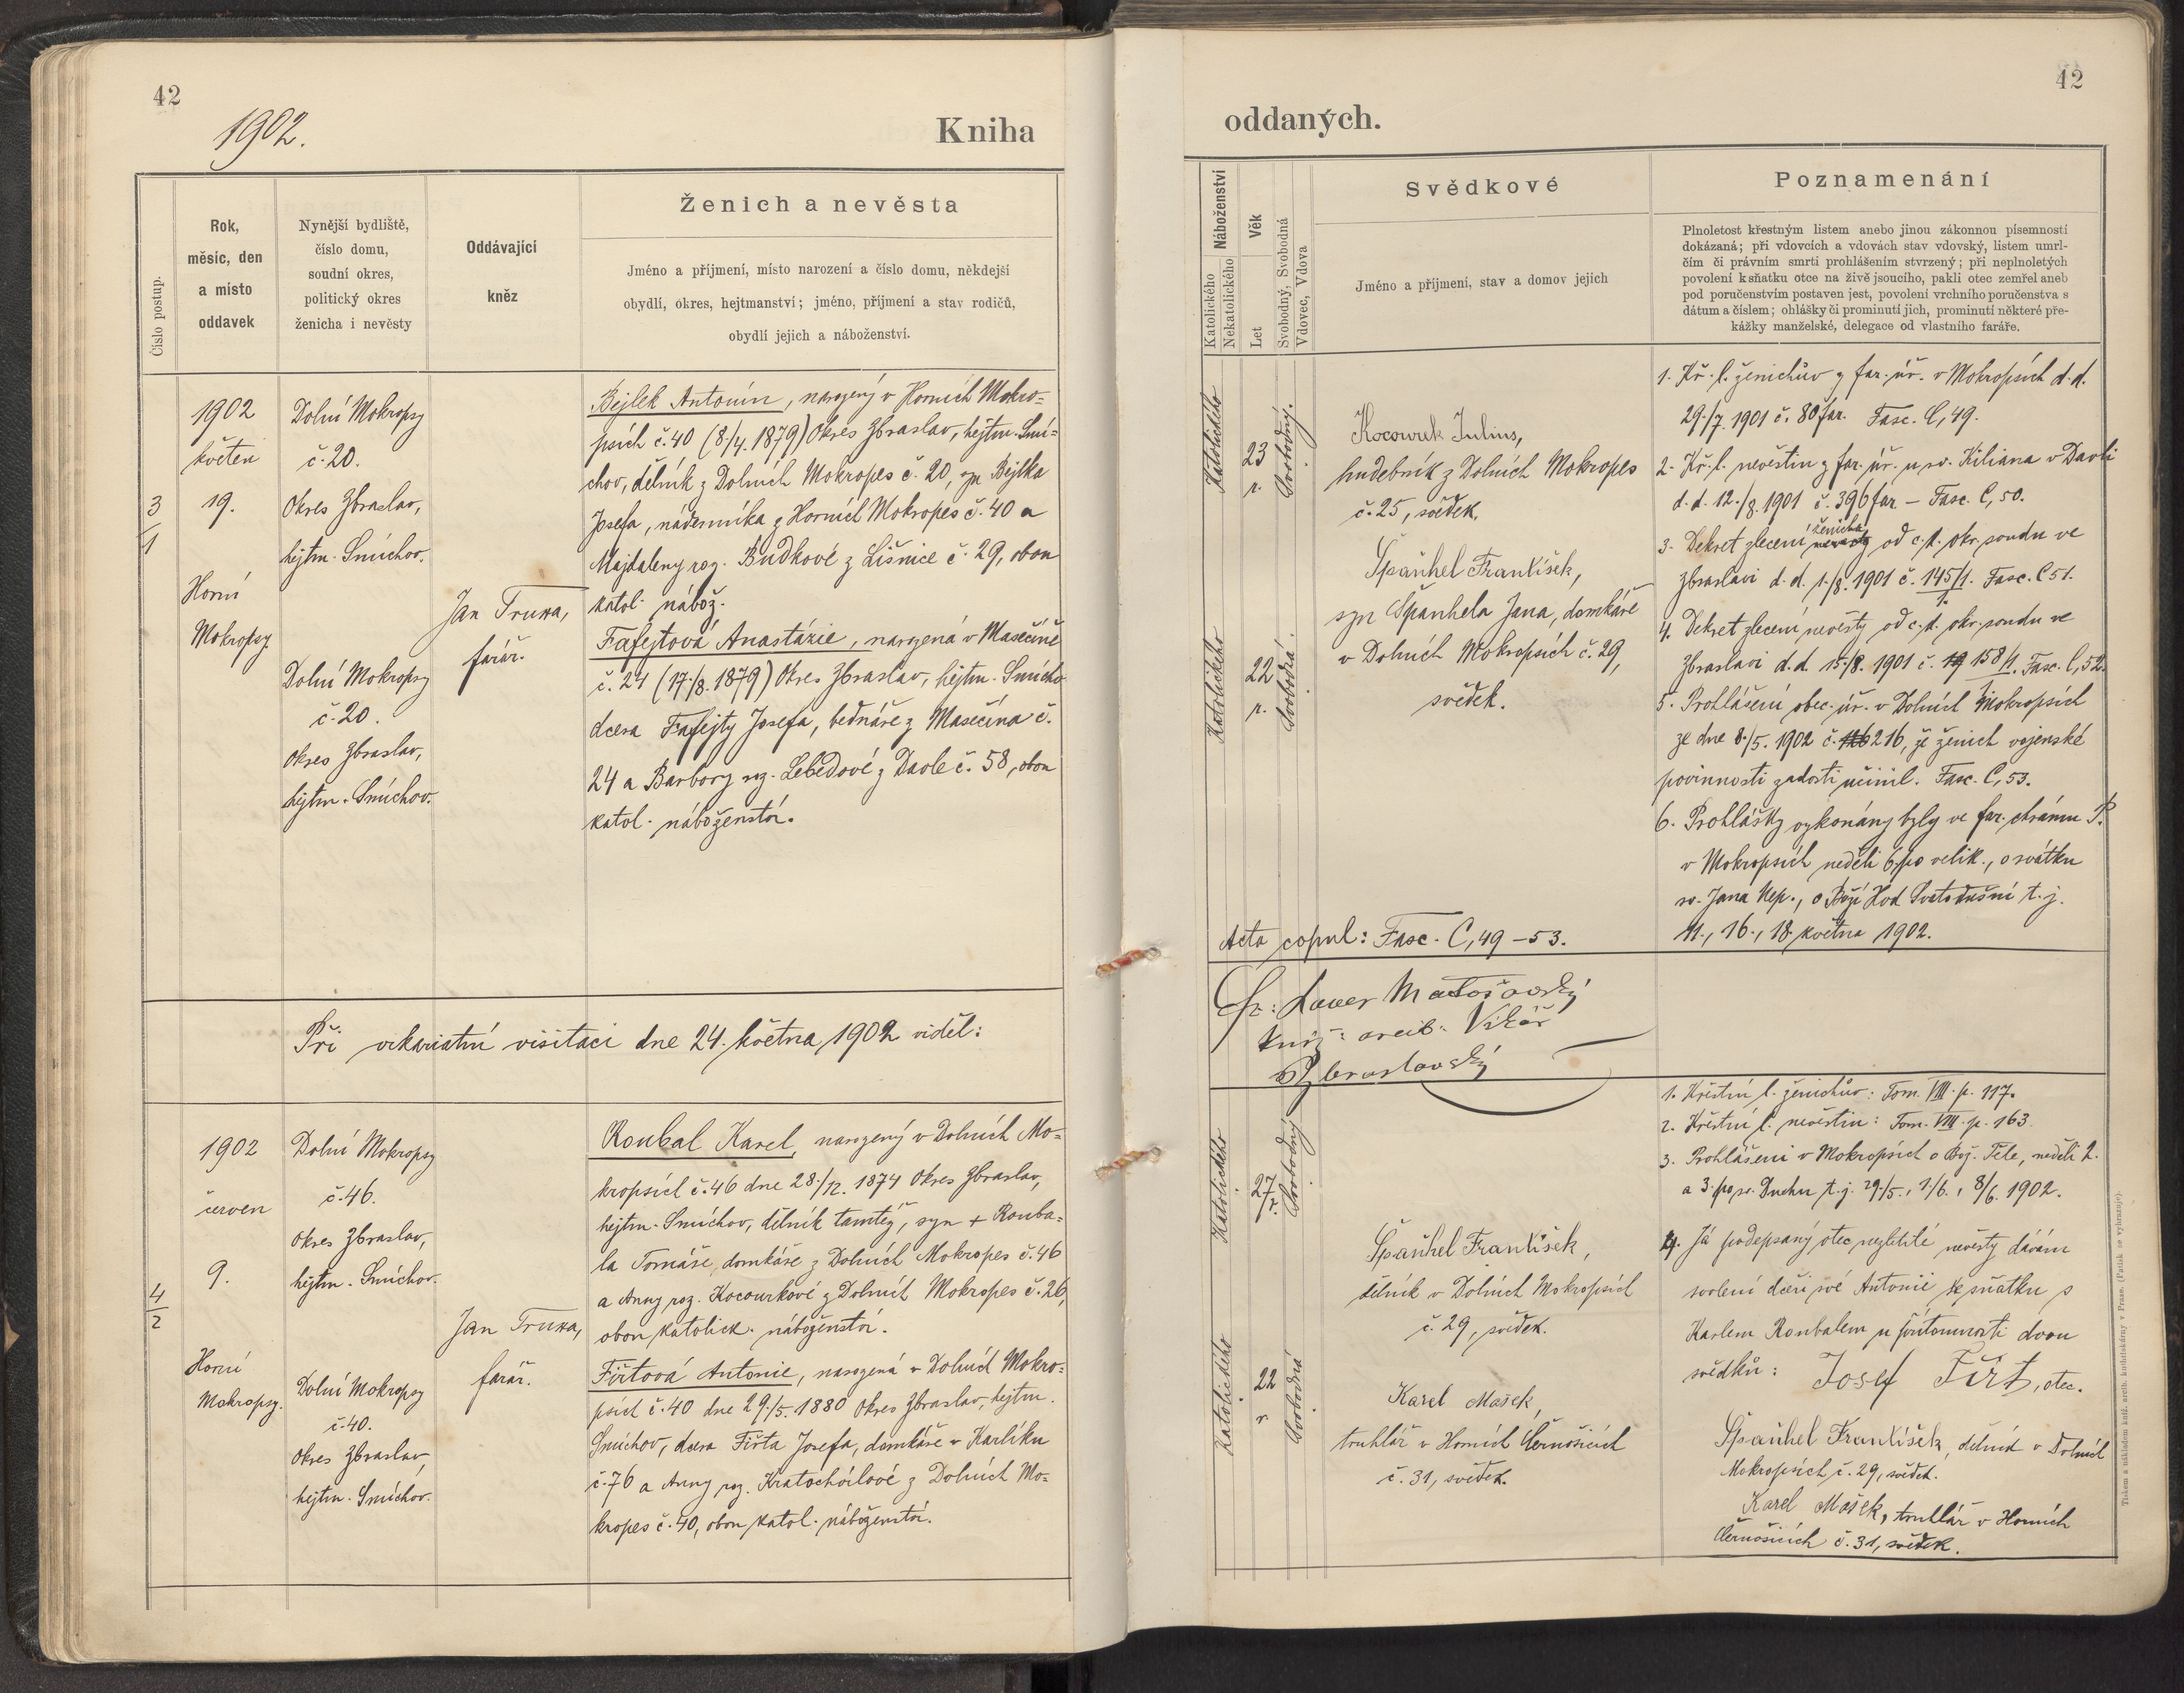 42
1902.
Kniha
Číslo postup.
Rok,
měsíc, den
a místo
oddavek
Nynější bydliště,
číslo domu,
soudní okres,
politický okres
ženicha i nevěsty
Oddávající
kněz
Ženich a nevěsta
Jméno a příjmení, místo narození a číslo domu, někdejší
obydlí, okres, hejtmanství; jméno, příjmení a stav rodičů,
obydlí jejich a náboženství.
3
1
1902
květen
19.
Horní
Mokropsy.
Dolní Mokropsy
č. 20.
Okres Zbraslav,
hejtm. Smíchov.
Dolní Mokropsy
č. 20.
okres Zbraslav,
hejtm. Smíchov.
Jan Truxa,
farář.
Bejlek Antonín, narozený v Horních Mokro-
psích č. 40 (8./4. 1879) Okres Zbraslav, hejtm. Smí-
chov, dělník z Dolních Mokropes č. 20, syn Bejlka
Josefa, nádenníka z Horních Mokropes č. 40 a
Majdaleny roz. Budkové z Líšnice č. 29, obou
katol. nábož.
Fafejtová Anastázie, narozená v Masečíně
č. 24 (17./8. 1879) Okres Zbraslav, hejtm. Smícho
dcera Fafejty Josefa, bednáře z Masečína č.
24 a Barbory roz. Lebedové z Davle č. 58, obou
katol. náboženství.
Při vikariatní visitaci dne 24. května 1902 viděl:
4
2
1902
červen
9.
Horní
Mokropsy.
Dolní Mokropsy
č. 46.
okres Zbraslav,
hejtm. Smíchov.
Dolní Mokropsy
č. 40.
Okres Zbraslav,
hejtm. Smíchov.
Jan Truxa,
farář.
Roubal Karel, narozený v Dolních Mo-
kropsích č. 46 dne 28./12. 1874 Okres Zbraslav,
hejtm. Smíchov, dělník tamtéž, syn + Rouba-
la Tomáše, domkáře z Dolních Mokropes č. 46
a Anny roz. Kocourkové z Dolních Mokropes č. 26,
obou katolick. náboženství.
Fiřtová Antonie, narozená v Dolních Mokro-
psích č. 40 dne 29./5. 1880 Okres Zbraslav, hejtm.
Smíchov, dcera Fiřta Josefa, domkáře v Karlíku
č. 76 a Anny roz. Kratochvílové z Dolních Mo-
kropes č. 40, obou katol. náboženství.
42
oddaných.
Náboženství
Katolického
Nekatolického
Věk
Let
Svobodný, Svobodná
Vdovec, Vdova
Svědkové
Jméno a příjmení, stav a domov jejich
Poznamenání
Plnoletost křestným listem anebo jinou zákonnou písemností
dokázaná; při vdovcích a vdovách stav vdovský, listem umrl-
čím či právním smrti prohlášením stvrzený; při neplnoletých
povolení k sňatku otce na živě jsoucího, pakli otec zemřel aneb
pod poručenstvím postaven jest, povolení vrchního poručenstva s
dátum a číslem; ohlášky či prominutí jich, prominutí některé pře-
kážky manželské, delegace od vlastního faráře.
Katolického
23
r.
Svobodný.
Katolického
22
r.
Svobodná.
Kocourek Julius,
hudebník z Dolních Mokropes
č. 25, svědek.
Špaňhel František,
syn Španhela Jana, domkáře
v Dolních Mokropsích č. 29,
svědek.
1. Kř. l. ženichův z far. úř. v Mokropsích d. d.
29./7. 1901 č. 80 far. Fasc. C, 49.
2. Kř. l. nevěstin z far. úř. u sv. Kiliana v Davli
d. d. 12./8. 1901 č. 396 far – Fasc. C, 50.
3. Dekret zlecení ženicha nevěsty od c. k. okr. soudu ve
Zbraslavi d. d. 1./8. 1901 č. 145/1. Fasc. C 51.
4. Dekret zlecení nevěsty od c. k. okr. soudu ve
Zbraslavi d. d. 15./8. 1901 č. 19 158/1. Fasc. C, 52.
5. Prohlášení obec. úř. v Dolních Mokropsích
ze dne 8./5. 1902 č. 126 216, že ženich vojenské
povinnosti zadosti učinil. Fasc. C, 53.
6. Prohlášky vykonány byly ve far. chrámu P.
v Mokropsích neděli 6 po velik., o svátku
sv. Jana Nep., o Boží Hod Svatodušní t. j.
11., 16., 18 května 1902.
Acta copul: Fasc. C, 49 – 53.
Fr: Xaver Matošovský
kníž: arcib: Vikář
Zbraslavský
Katolického
27
r.
Svobodný
Katolického
22
r
Svobodná
Špaňhel František,
dělník v Dolních Mokropsích
č. 29, svědek.
Karel Mašek,
truhlář v Horních Černošicích
č. 31, svědek.
1. Křestní l. ženichův: Tom. VIII. p. 117.
2. Křestní l. nevěstin: Tom. VIII. p. 163.
3. Prohlášení v Mokropsích o Bož. Těle, neděli 2.
a 3. po sv. Duchu t. j. 29./5., 1/6., 8/6. 1902.
4. Já podepsaný otec nezletilé nevěsty dávám
svolení dceři své Antonii ke sňatku s
Karlem Roubalem u přítomnosti dvou
svědků: Josef Fiřt, otec.
Špaňhel František, dělník v Dolních
Mokropsích č. 29, svědek.
Karel Mašek, truhlář v Horních
Černošicích č. 31, svědek.
Tiskem a nákladem kníž. arcib. knihtiskárny v Praze. (Patisk se vyhrazuje).